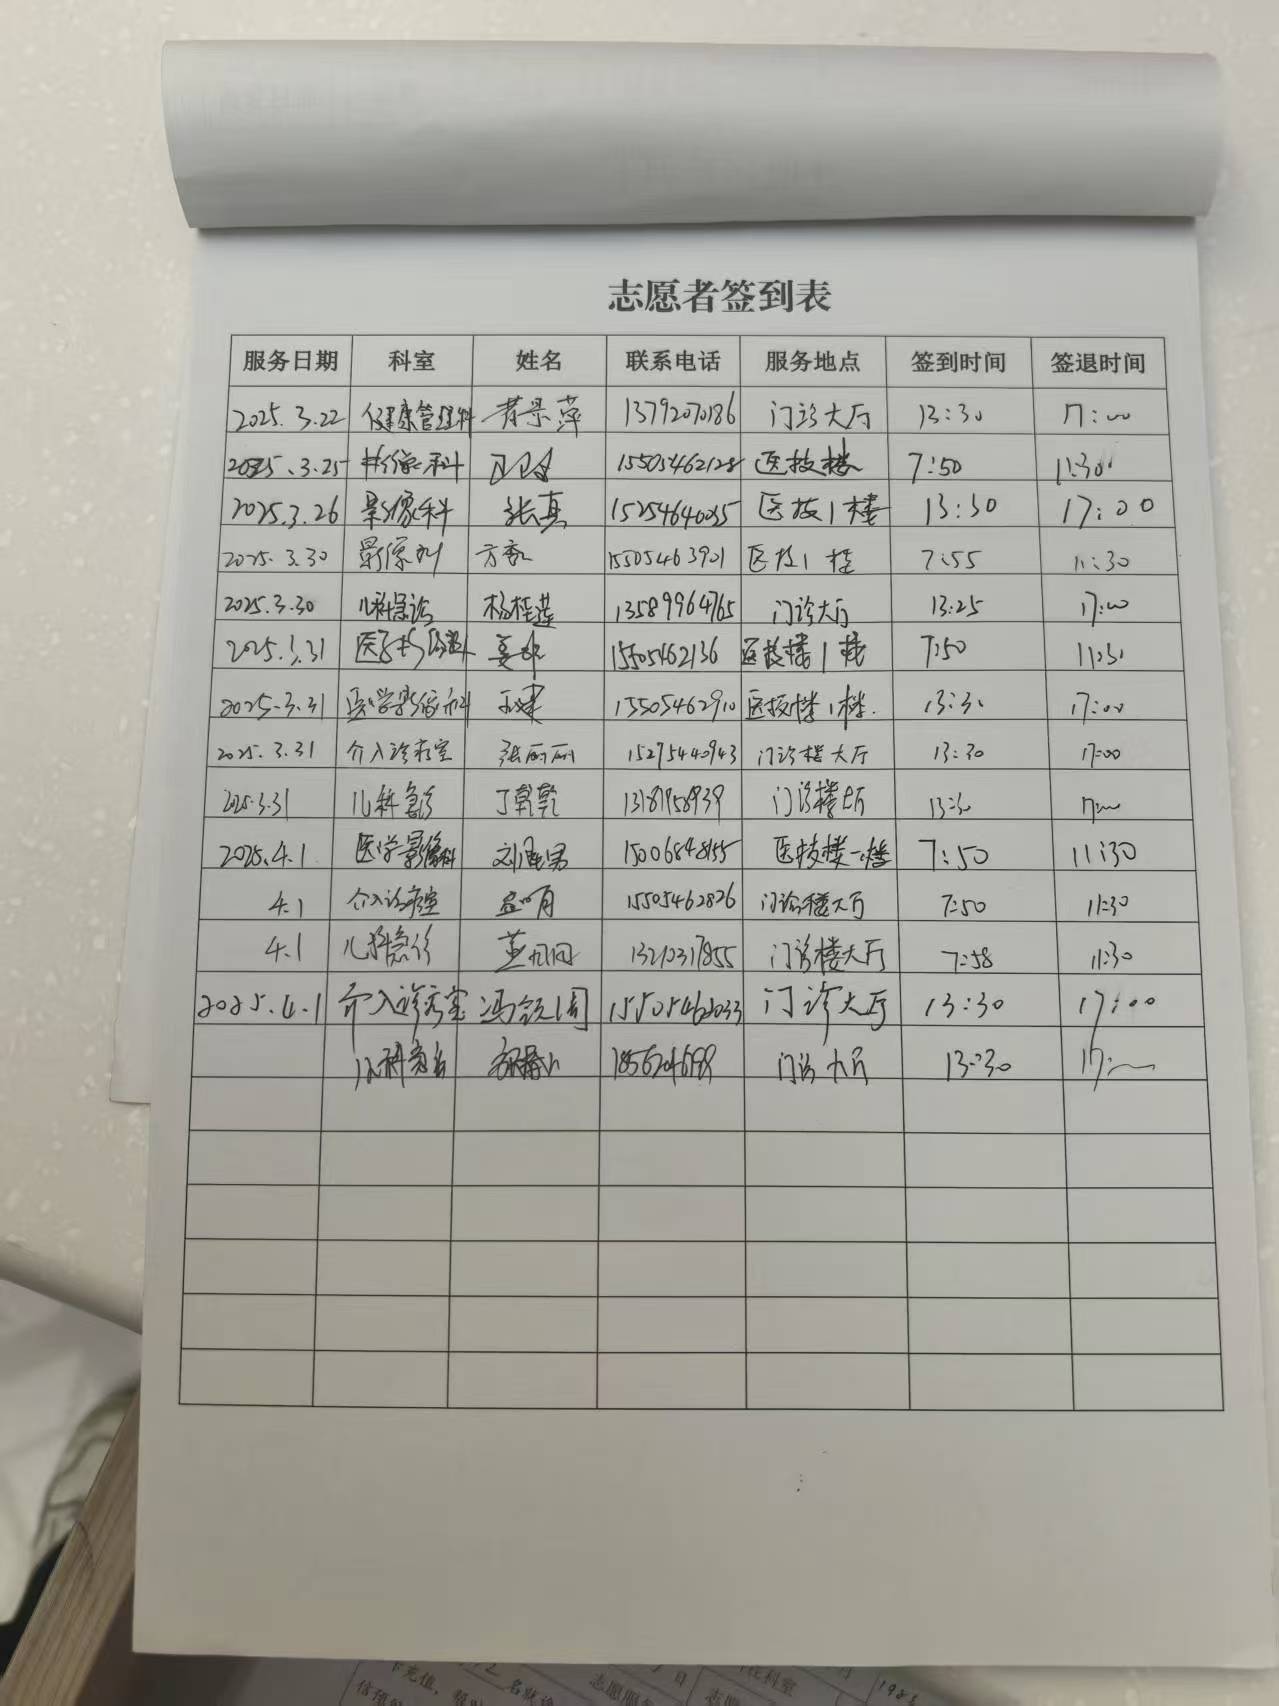 志愿者签到表
服务日期 科室 姓名 联系电话 服务地点 签到时间 签退时间
2025.3.22 健康管理科 景萍 13792070186 门诊大厅 13:30 17:00
2025.3.25 影像科 15505462128 医技楼 7:50 11:30
2025.3.26 影像科 张真 15254640035 医技1楼 13:30 17:00
2025.3.30 影像科 15505463901 医技1楼 7:55 11:30
2025.3.30 儿科急诊 杨桂莲 13589964765 门诊大厅 13:25 17:00
2025.3.31 医学影像科 姜 15505462136 医技楼1楼 7:50 11:30
2025.3.31 医学影像科 15505462910 医技楼1楼. 13:30 17:00
2025.3.31 介入诊疗室 张丽丽 15275440943 门诊楼大厅 13:30 17:00
2025.3.31 儿科急诊 丁乾乾 13181958939 门诊楼大厅 13:30 17:00
2025.4.1 医学影像科 刘 男 15006848155 医技楼一楼 7:50 11:30
4.1 介入诊疗室 15505462826 门诊楼大厅 7:50 11:30
4.1 儿科急诊 门诊楼大厅 7:58 11:30
2025.4.1 介入诊疗室 冯 15505462033 门诊大厅 13:30 17:00
儿科急诊 门诊大厅 13:30 17: